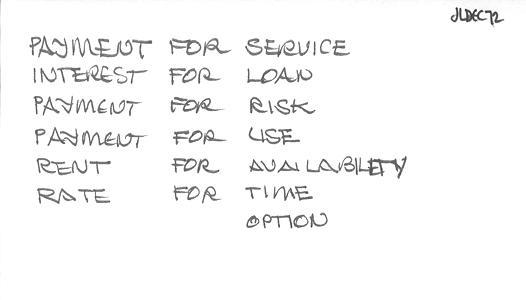 JLDEC72
PAYMENT FOR SERVICE
INTEREST FOR LOAN
PAYMENT FOR RISK
PAYMENT FOR USE
RENT FOR AVAILABILETY
RATE FOR TIME
OPTION